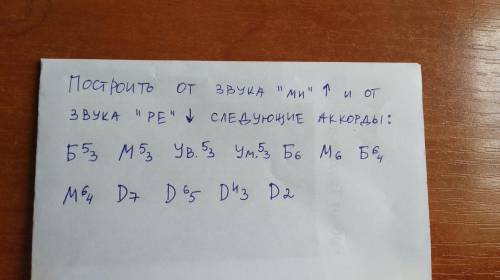 Построить от звука "ми" ↑ и от
звука "ре" ↓ следующие аккорды:
Б5/3 М5/3 Ув.5/3 Ум.5/3 Б6 М6 Б6/4
М6/4 D7 D6/5 D4/3 D2